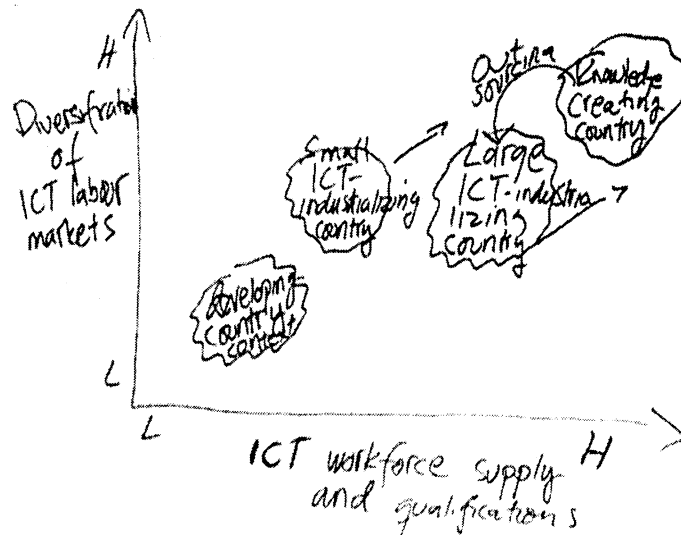 H
Diversifration
of
ICT labor
markets
L
L
ICT workforce supply H
and qualifications
Developing
country
context
Small
ICT-
industrializing
country
Out
sourcing
Large
ICT-industria
lizing
country
Knowledge
creating
country